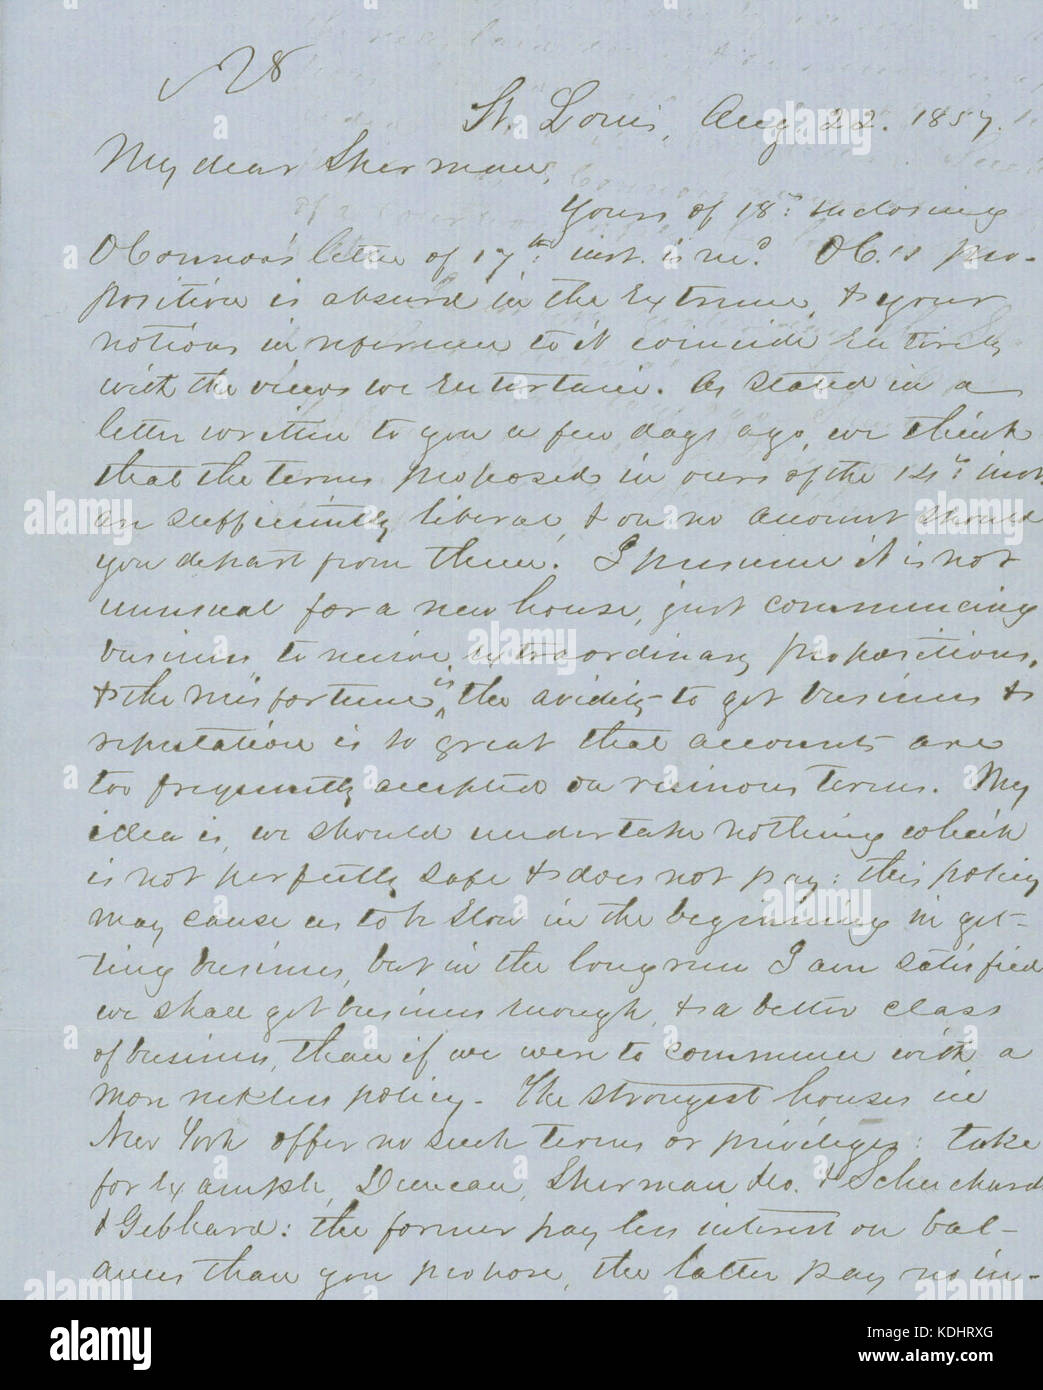 N 8
St. Louis, Aug. 22. 1857.
My dear Sherman,
Yours of 18th inclosing
O'Connor's letter of 17th inst. is recd. OC.'s pro-
position is absurd in the extreme, & your
notions in reference to it coincide entirely
with the views we entertain. As stated in a
letter written to you a few days ago, we think
that the terms proposed in ours of the 14th inst
are sufficiently liberal, & on no account should
you depart from them. I presume it is not
unusual for a new house, just commencing
business, to receive extraordinary propositions,
& the misfortune is, the avidity to get business &
reputation is so great that accounts are
too frequently accepted on ruinous terms. My
idea is, we should undertake nothing which
is not perfectly safe & does not pay: this policy
may cause us to be slow in the beginning in get-
ting business, but in the long run I am satisfied
we shall get business enough, & a better class
of business, than if we were to commence with a
more reckless policy. The strongest houses in
New York offer no such terms or privileges: take
for example, Duncan, Sherman &co. & Schuchard
& Gebhard: the former pay less interest on bal-
ances than you propose, the latter pay no in-
alamy
a
alamy
Image ID: KDHRXG
www.alamy.com